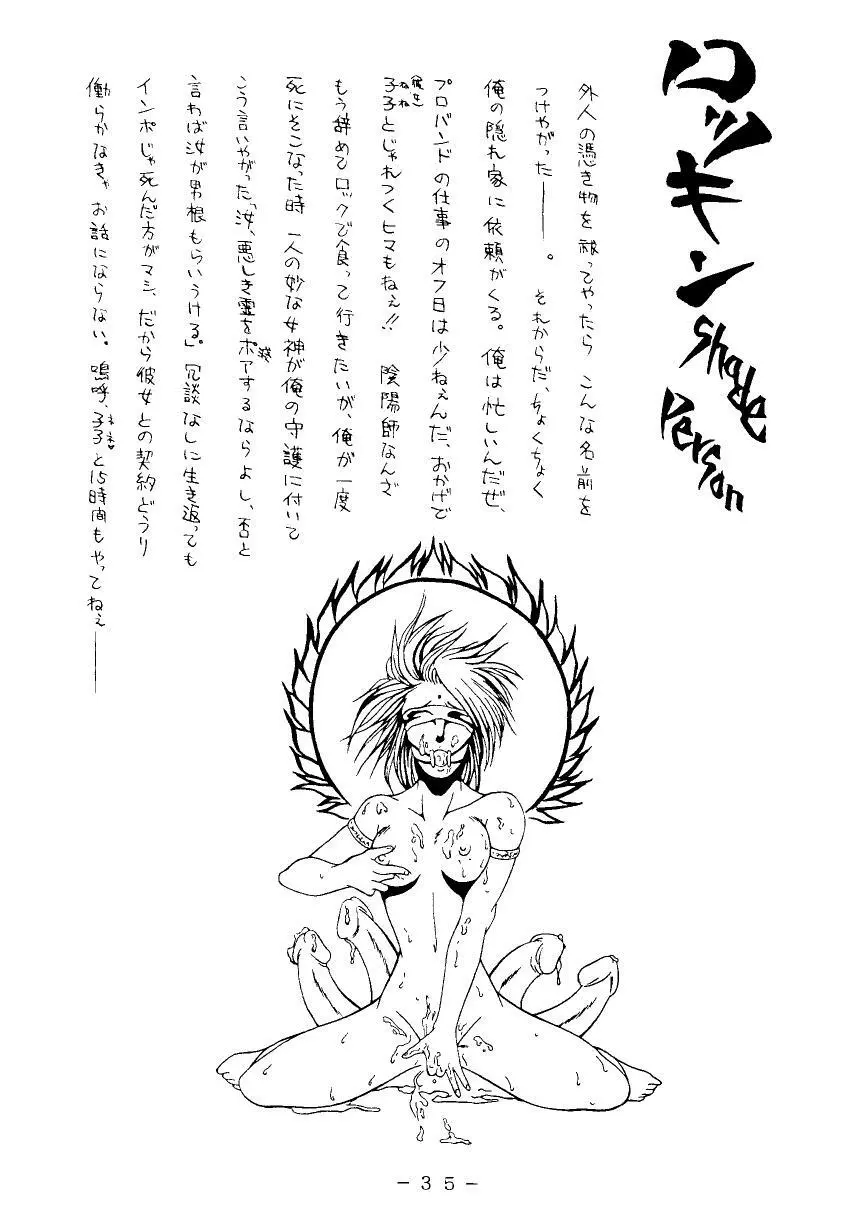 ロッキン
Shade
Person
外人の憑き物を祓ってやったら こんな名前を
つけやがった――。 それからだ、ちょくちょく
俺の隠れ家に依頼がくる。俺は忙しいんだぜ、
プロバンドの仕事のオフ日は少ねぇんだ、おかげで
子子とじゃれつくヒマもねぇ!! 陰陽師なんざ
もう辞めてロックで食って行きたいが、俺が一度
死にそこなった時 一人の妙な女神が俺の守護に付いて
こう言いやがった「汝、悪しき霊をポアするならよし、否と
言わば汝が男根もらいうける。」冗談なしに生き返っても
インポじゃ死んだ方がマシ、だから彼女との契約どうり
働らかなきゃお話にならない。嗚呼、子子と15時間もやってねぇ――
-35-